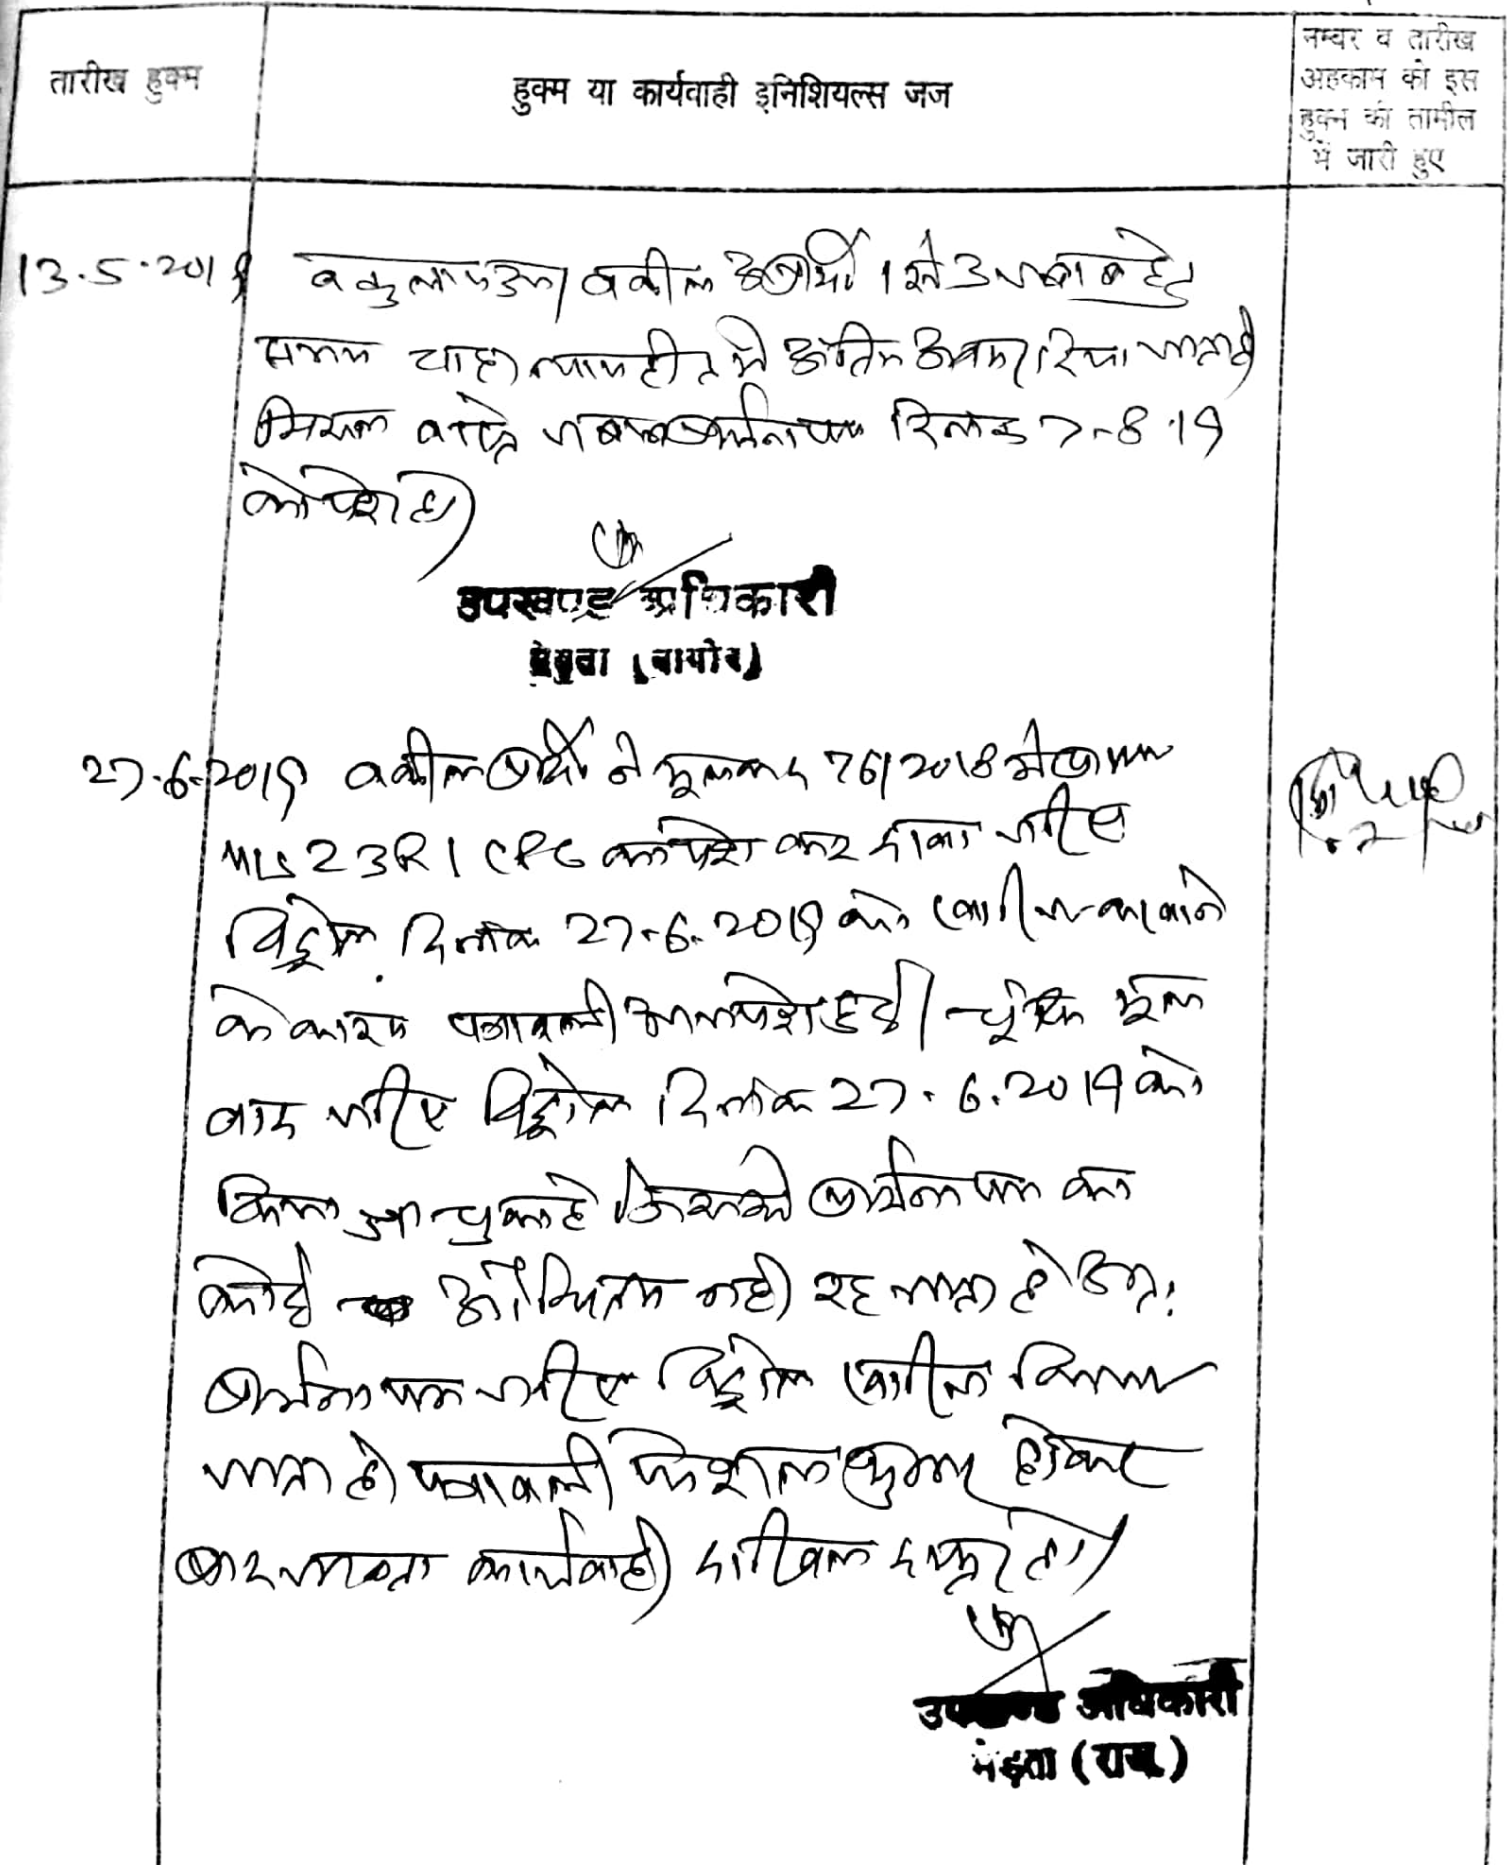 तारीख हुक्म
हुक्म या कार्यवाही इनिशियल्स जज
नम्बर व तारीख
अहकाम को इस
हुक्म की तामील
में जारी हुए
13.5.2019 वकुलाप उप। वकील अप्रार्थी 1 से 3 जबाब हेतु
समय चाहा न्यायहीत में अंतिम अवसर दिया जाता है
मिसल वास्ते जबाब प्रार्थना पत्र दिनांक 7-8-19
को पेश हो।
उपखण्ड अधिकारी
मेड़ता (नागौर)
27-6-2019 वकील प्रार्थी ने मूलवाद 76/2018 में प्रा.पत्र
U/S 23 R 1 CPC का पेश कर दावा जरिए
विड्रोल दिनांक 27-6-2019 को खारीज करवाने
के कारण पत्रावली आज पेश हुई। चूंकि मूल
वाद जरिए विड्रोल दिनांक 27.6.2019 को
किया जा चुका है जिससे प्रार्थना पत्र का
कोई औचित्य नही रह जाता है अतः
प्रार्थना पत्र जरिए विड्रोल खारीज किया
जाता है। पत्रावली फैशल शुमार होकर
बाद जाब्ता कार्यवाही दाखिल दफ्तर हो।
उपखण्ड अधिकारी
मेड़ता (राज.)